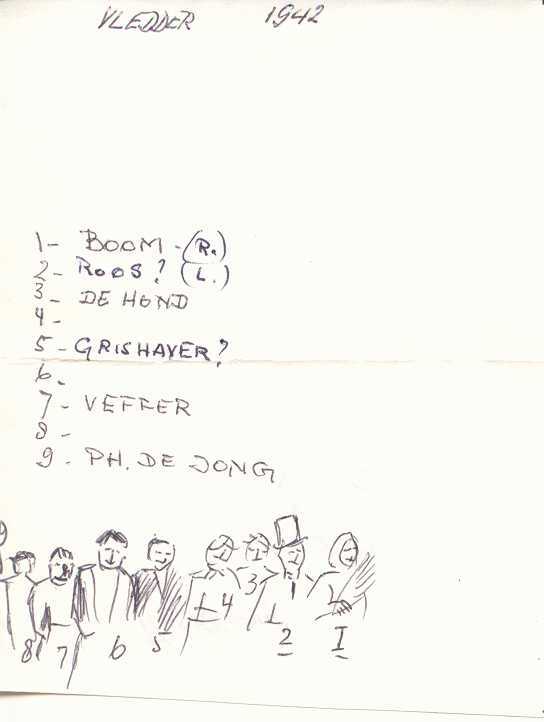 VLEDDER 1942
1- BOOM - (R.)
2- ROOS? (L.)
3- DE HOND
4-
5- GRISHAVER?
6-
7- VEFFER
8-
9- PH. DE JONG
9
8 7 6 5 4 3 2 I